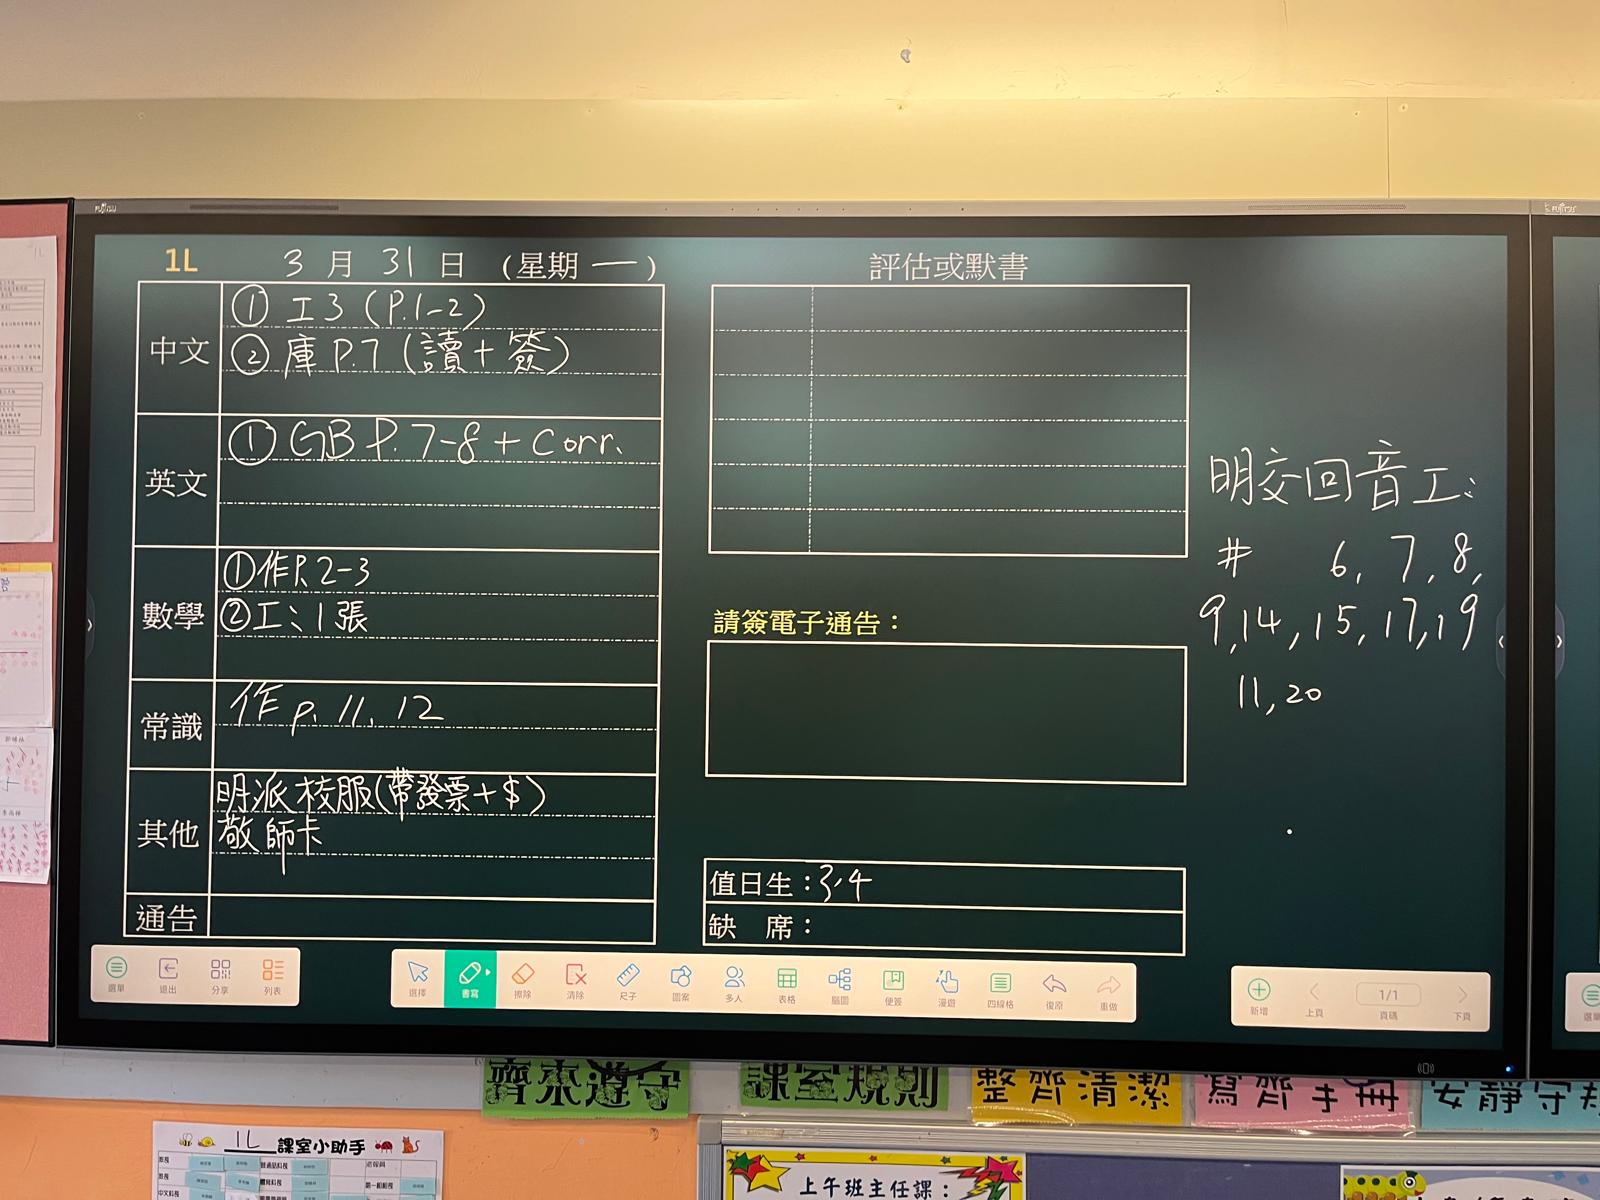 FUJITSU
1L 3月31日 (星期一)
中文
① 工3 (P.1-2)
② 庫 P.7 (讀+簽)
英文
① GB P. 7-8 + Corr.
數學
①作P.2-3
②工:1張
常識
作 p. 11, 12
其他
明派校服(帶發票+$)
敬師卡
通告
評估或默書
請簽電子通告：
值日生：3,4
缺 席：
明交回音工:
# 6, 7, 8,
9, 14, 15, 17, 19
11, 20
選單 退出 分享 列表
選擇 書寫 擦除 清除 尺子 圖案 多人 表格 腦圖 便簽 漫遊 四線格 復原 重做
新增 上頁 1/1 頁碼 下頁
齊來遵守 課室規則 整齊清潔 寫齊手冊 安靜守規
1L 課室小助手
上午班主任課：